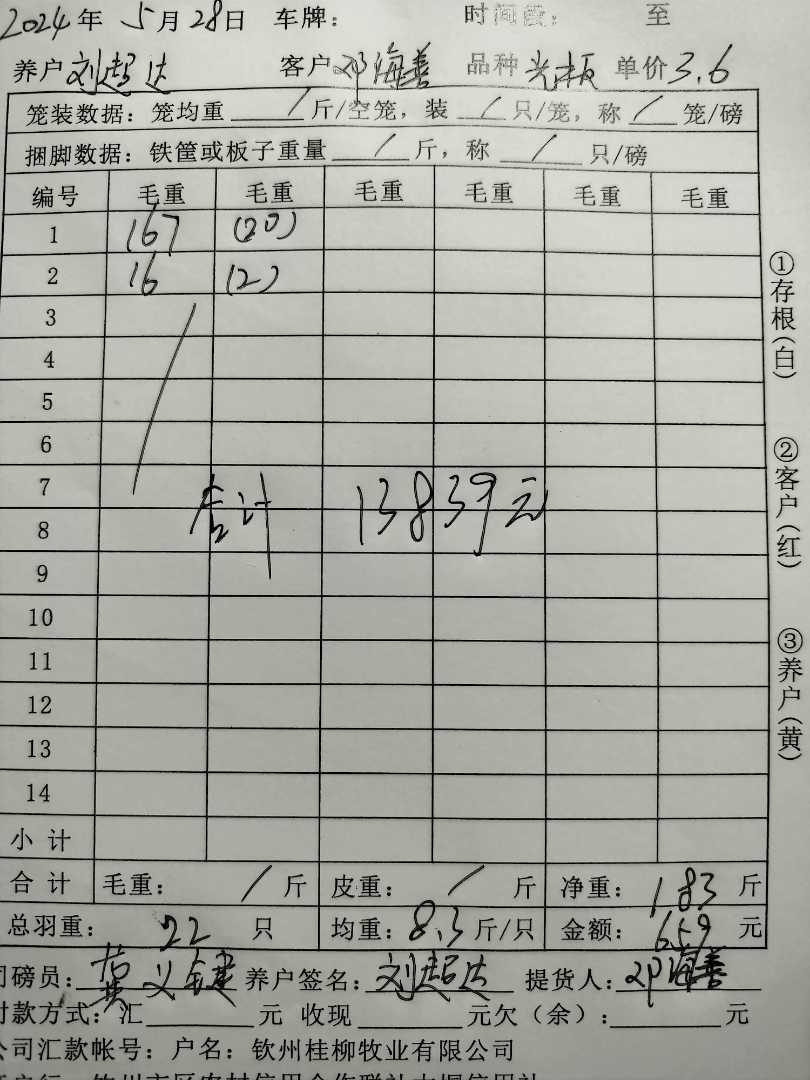 2024年 5月28日 车牌: 时间段: 至
养户 刘超达 客户 邓海善 品种 光板 单价 3.6
笼装数据: 笼均重 / 斤/空笼, 装 / 只/笼, 称 / 笼/磅
捆脚数据: 铁筐或板子重量 / 斤, 称 / 只/磅
编号 毛重 毛重 毛重 毛重 毛重 毛重
1 167 (20)
2 16 (2)
3
4
5
6
7
合计 13839元
8
9
10
11
12
13
14
小计
合计 毛重: / 斤 皮重: / 斤 净重: 183 斤
总羽重: 22 只 均重: 8.3 斤/只 金额: 659 元
司磅员: 黄义健 养户签名: 刘超达 提货人: 邓海善
付款方式: 汇 元 收现 元欠(余): 元
公司汇款帐号: 户名: 钦州桂柳牧业有限公司
①存根(白)
②客户(红)
③养户(黄)